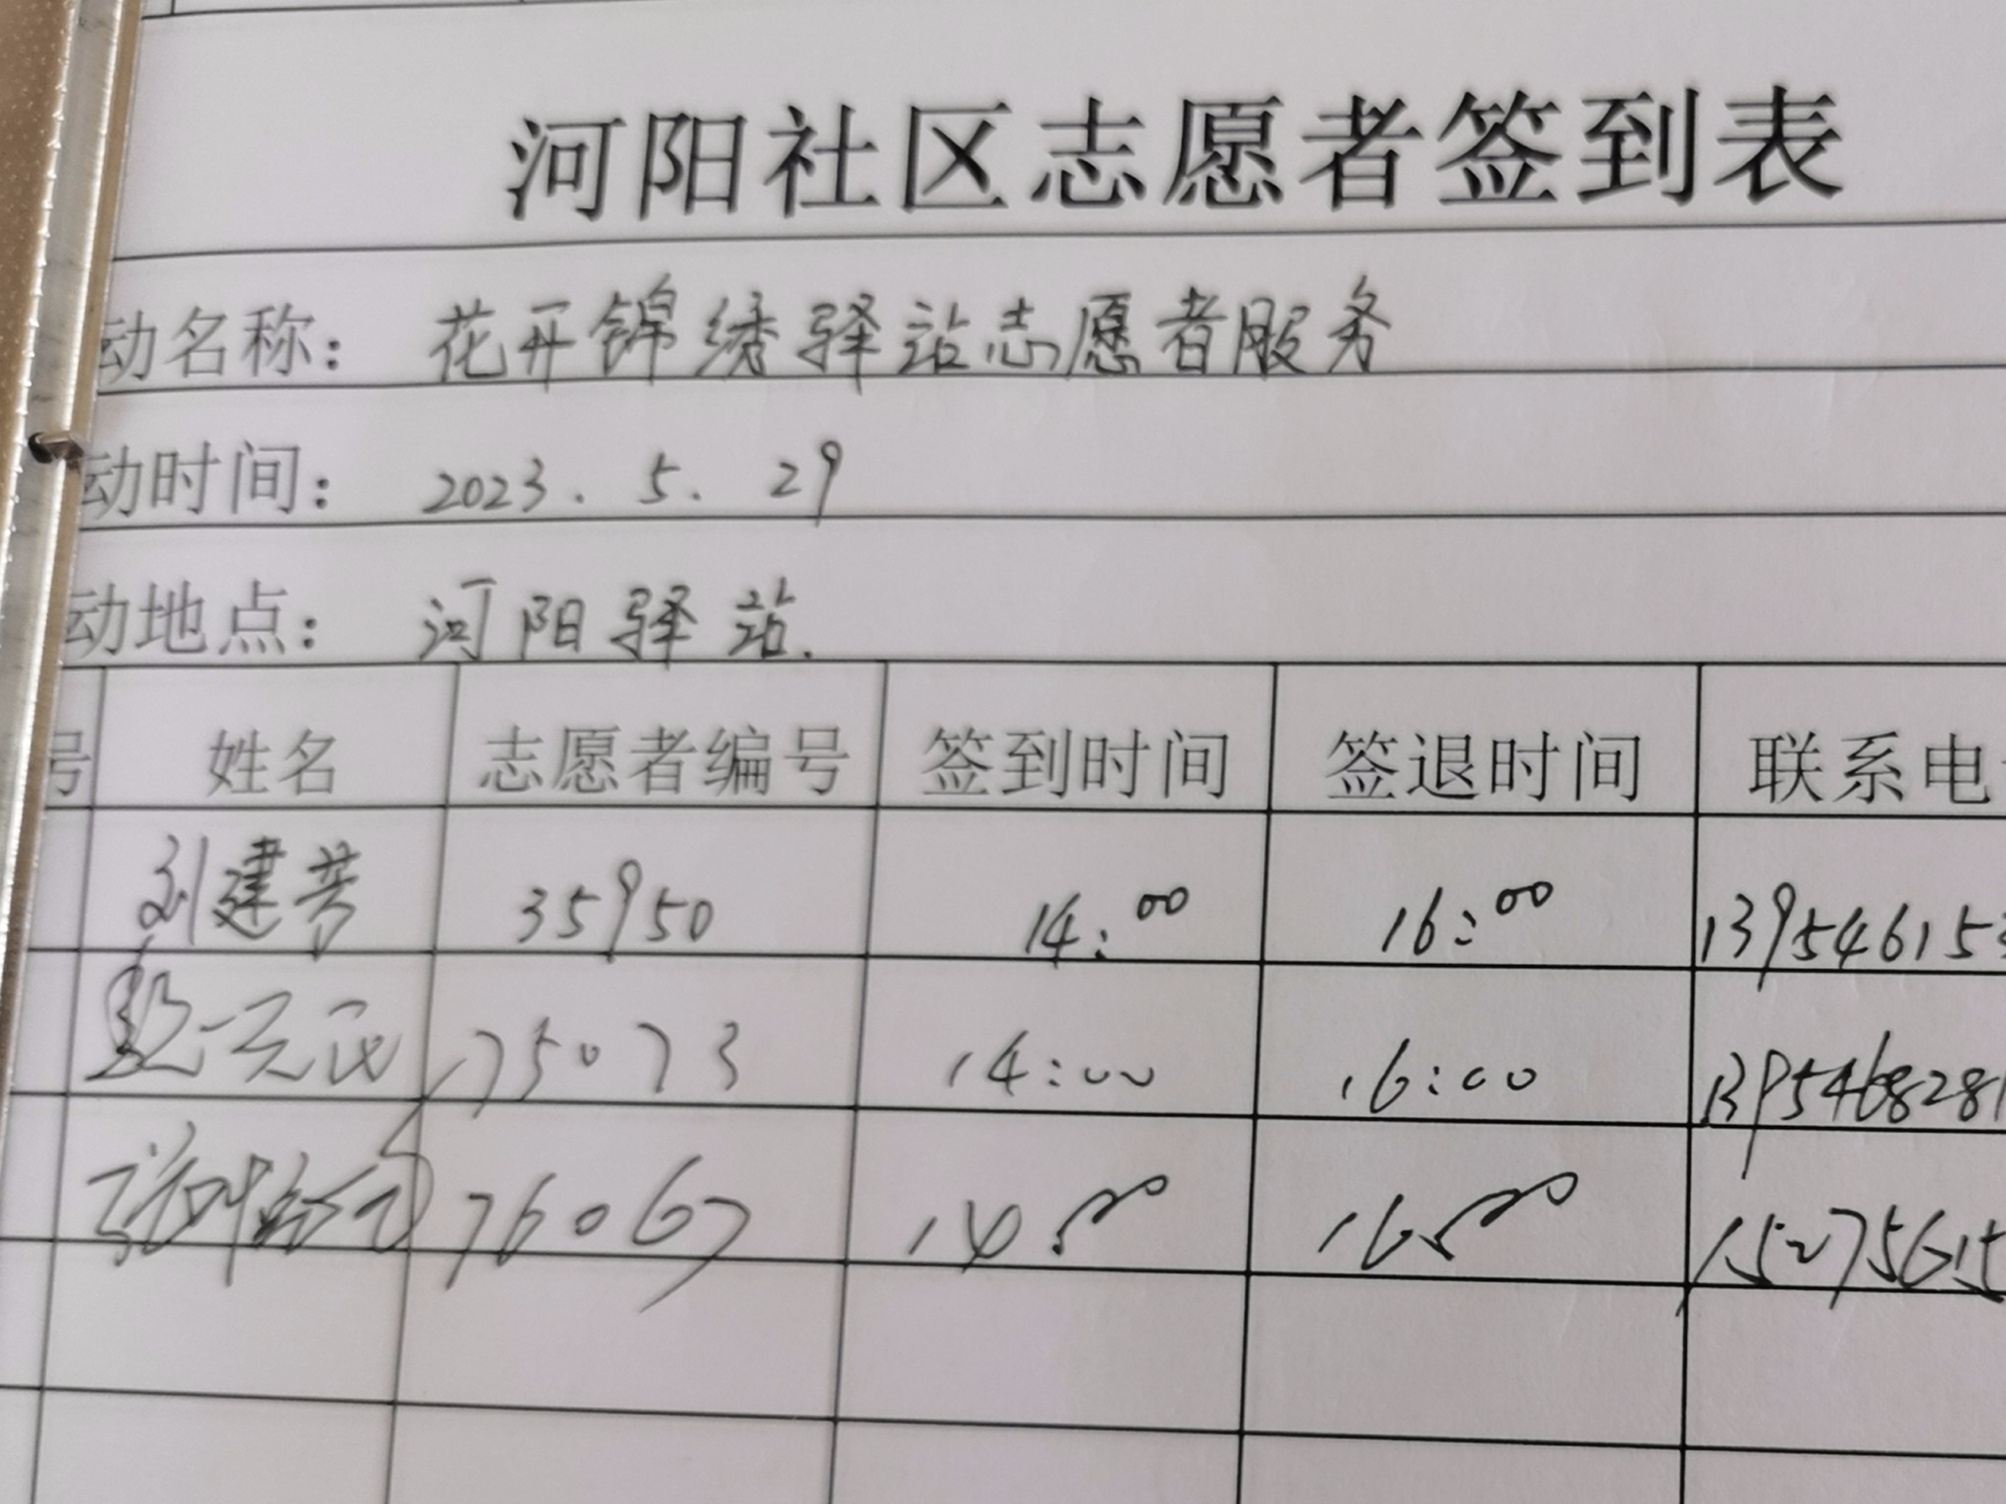 河阳社区志愿者签到表
动名称： 花开锦绣驿站志愿者服务
动时间： 2023.5.29
动地点： 河阳驿站.
号 姓名 志愿者编号 签到时间 签退时间 联系电
刘建芳 35950 14:00 16:00 139546153
75073 14:00 16:00 1395468281
76067 14:00 16:00 15275615